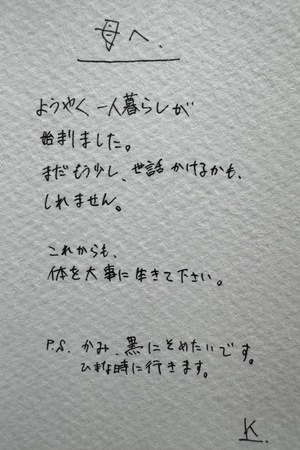 母へ.
ようやく一人暮らしが
始まりました。
まだもう少し、世話かけるかも、
しれません。
これからも、
体を大事に生きて下さい。
P.S. かみ、黒にそめたいです。
ひまな時に行きます。
K.